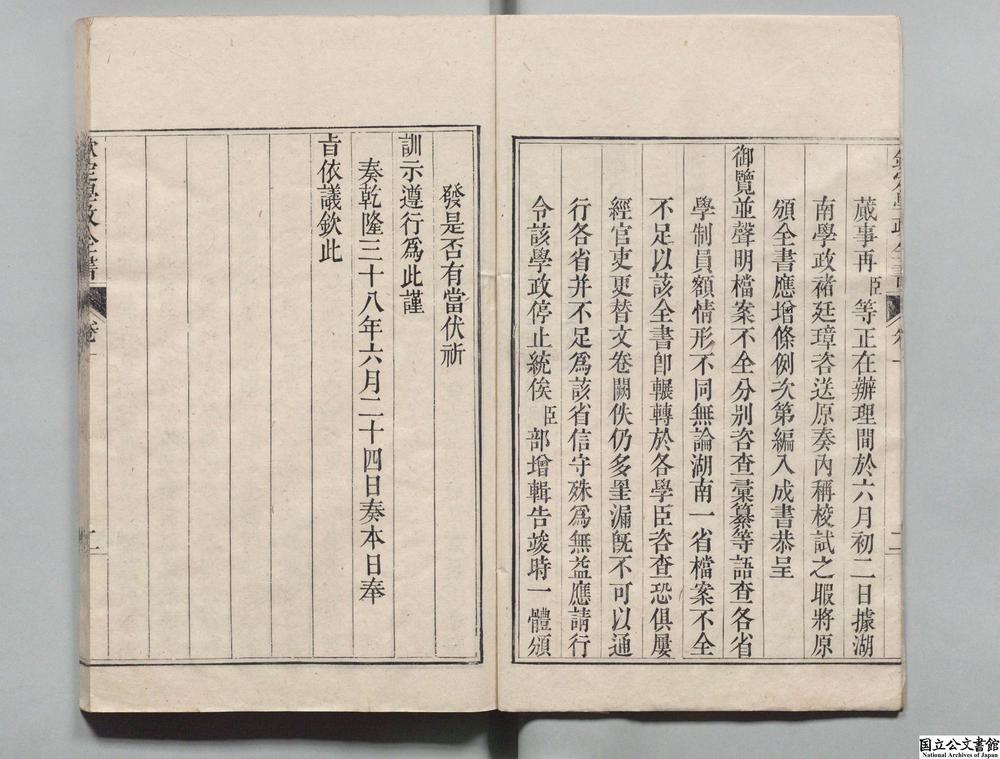 蕆事再臣等正在辦理間於六月初二日據湖
南學政褚廷璋咨送原奏內稱校試之暇將原
頒全書應增條例次第編入成書恭呈
御覽並聲明檔案不全分別咨查彙纂等語查各省
學制員額情形不同無論湖南一省檔案不全
不足以該全書卽輾轉於各學臣咨查恐俱屢
經官吏更替文卷闕佚仍多罣漏旣不可以通
行各省并不足爲該省信守殊爲無益應請行
令該學政停止統俟臣部增輯告竣時一體頒
發是否有當伏祈
訓示遵行爲此謹
奏乾隆三十八年六月二十四日奏本日奉
旨依議欽此
欽定學政全書
卷一
二
国立公文書館
National Archives of Japan